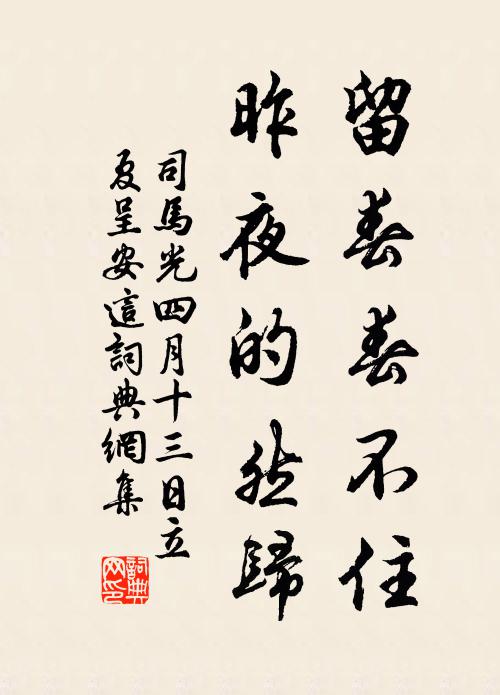 留春春不住
昨夜的然歸
司馬光四月十三日立
夏呈安這詞典網集
詞典
网印